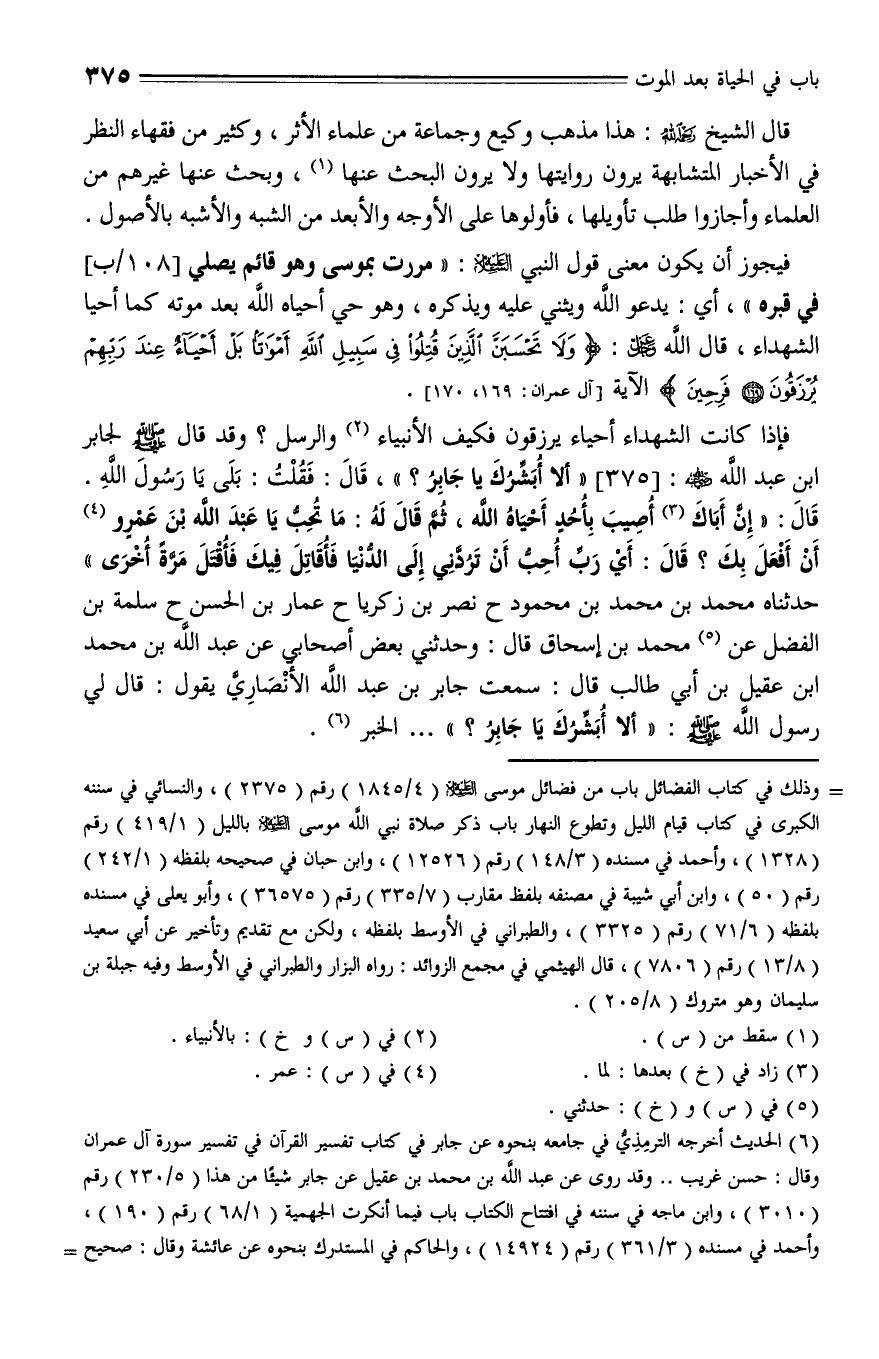 باب في الحياة بعد الموت ٣٧٥
قال الشيخ رحمه الله : هذا مذهب وكيع وجماعة من علماء الأثر ، وكثير من فقهاء النظر
في الأخبار المتشابهة يرون روايتها ولا يرون البحث عنها (١) ، وبحث عنها غيرهم من
العلماء وأجازوا طلب تأويلها ، فأولوها على الأوجه والأبعد من الشبه والأشبه بالأصول .
فيجوز أن يكون معنى قول النبي عليه السلام : « مررت بموسى وهو قائم يصلي [١٠٨/ب]
في قبره » ، أي : يدعو اللَّه ويثني عليه ويذكره ، وهو حي أحياه اللَّه بعد موته كما أحيا
الشهداء ، قال اللَّه عز وجل : ﴿ وَلَا تَحْسَبَنَّ ٱلَّذِينَ قُتِلُوا۟ فِى سَبِيلِ ٱللَّهِ أَمْوَٰتًۢا بَلْ أَحْيَآءٌ عِندَ رَبِّهِمْ
يُرْزَقُونَ ۝١٦٩ فَرِحِينَ ﴾ الآية [آل عمران: ١٦٩، ١٧٠] .
فإذا كانت الشهداء أحياء يرزقون فكيف الأنبياء (٢) والرسل ؟ وقد قال ﷺ لجابر
ابن عبد اللَّه رضي الله عنه : [٣٧٥] « ألا أُبَشِّرُكَ يا جَابِرُ ؟ » ، قَالَ : فَقُلْتُ : بَلَى يَا رَسُولَ اللَّهِ .
قَالَ : « إِنَّ أَبَاكَ (٣) أُصِيبَ بِأُحُدٍ أَحْيَاهُ اللَّه ، ثُمَّ قَالَ لَهُ : مَا تُحِبُّ يَا عَبْدَ اللَّه بْنَ عَمْرِو (٤)
أَنْ أَفْعَلَ بِكَ ؟ قَالَ : أَيْ رَبِّ أُحِبُّ أَنْ تَرُدَّنِي إِلَى الدُّنْيَا فَأُقَاتِلَ فِيكَ فَأُقْتَلَ مَرَّةً أُخْرَى »
حدثناه محمد بن محمد بن محمود ح نصر بن زكريا ح عمار بن الحسن ح سلمة بن
الفضل عن (٥) محمد بن إسحاق قال : وحدثني بعض أصحابي عن عبد اللَّه بن محمد
ابن عقيل بن أبي طالب قال : سمعت جابر بن عبد اللَّه الأَنْصَارِيَّ يقول : قال لي
رسول اللَّه ﷺ : « ألا أُبَشِّرُكَ يَا جَابِرُ ؟ » ... الخبر (٦) .
= وذلك في كتاب الفضائل باب من فضائل موسى عليه السلام ( ١٨٤٥/٤ ) رقم ( ٢٣٧٥ ) ، والنسائي في سننه
الكبرى في كتاب قيام الليل وتطوع النهار باب ذكر صلاة نبي اللَّه موسى عليه السلام بالليل ( ٤١٩/١ ) رقم
( ١٣٢٨ ) ، وأحمد في مسنده ( ١٤٨/٣ ) رقم ( ١٢٥٢٦ ) ، وابن حبان في صحيحه بلفظه ( ٢٤٢/١ )
رقم ( ٥٠ ) ، وابن أبي شيبة في مصنفه بلفظ مقارب ( ٣٣٥/٧ ) رقم ( ٣٦٥٧٥ ) ، وأبو يعلى في مسنده
بلفظه ( ٧١/٦ ) رقم ( ٣٣٢٥ ) ، والطبراني في الأوسط بلفظه ، ولكن مع تقديم وتأخير عن أبي سعيد
( ١٣/٨ ) رقم ( ٧٨٠٦ ) ، قال الهيثمي في مجمع الزوائد : رواه البزار والطبراني في الأوسط وفيه جبلة بن
سليمان وهو متروك ( ٢٠٥/٨ ) .
(١) سقط من ( س ) . (٢) في ( س ) و ( خ ) : بالأنبياء .
(٣) زاد في ( خ ) بعدها : لما . (٤) في ( س ) : عمر .
(٥) في ( س ) و ( خ ) : حدثني .
(٦) الحديث أخرجه الترمذِيُّ في جامعه بنحوه عن جابر في كتاب تفسير القرآن في تفسير سورة آل عمران
وقال : حسن غريب .. وقد روى عن عبد اللَّه بن محمد بن عقيل عن جابر شيئًا من هذا ( ٢٣٠/٥ ) رقم
( ٣٠١٠ ) ، وابن ماجه في سننه في افتتاح الكتاب باب فيما أنكرت الجهمية ( ٦٨/١ ) رقم ( ١٩٠ ) ،
وأحمد في مسنده ( ٣٦١/٣ ) رقم ( ١٤٩٢٤ ) ، والحاكم في المستدرك بنحوه عن عائشة وقال : صحيح =